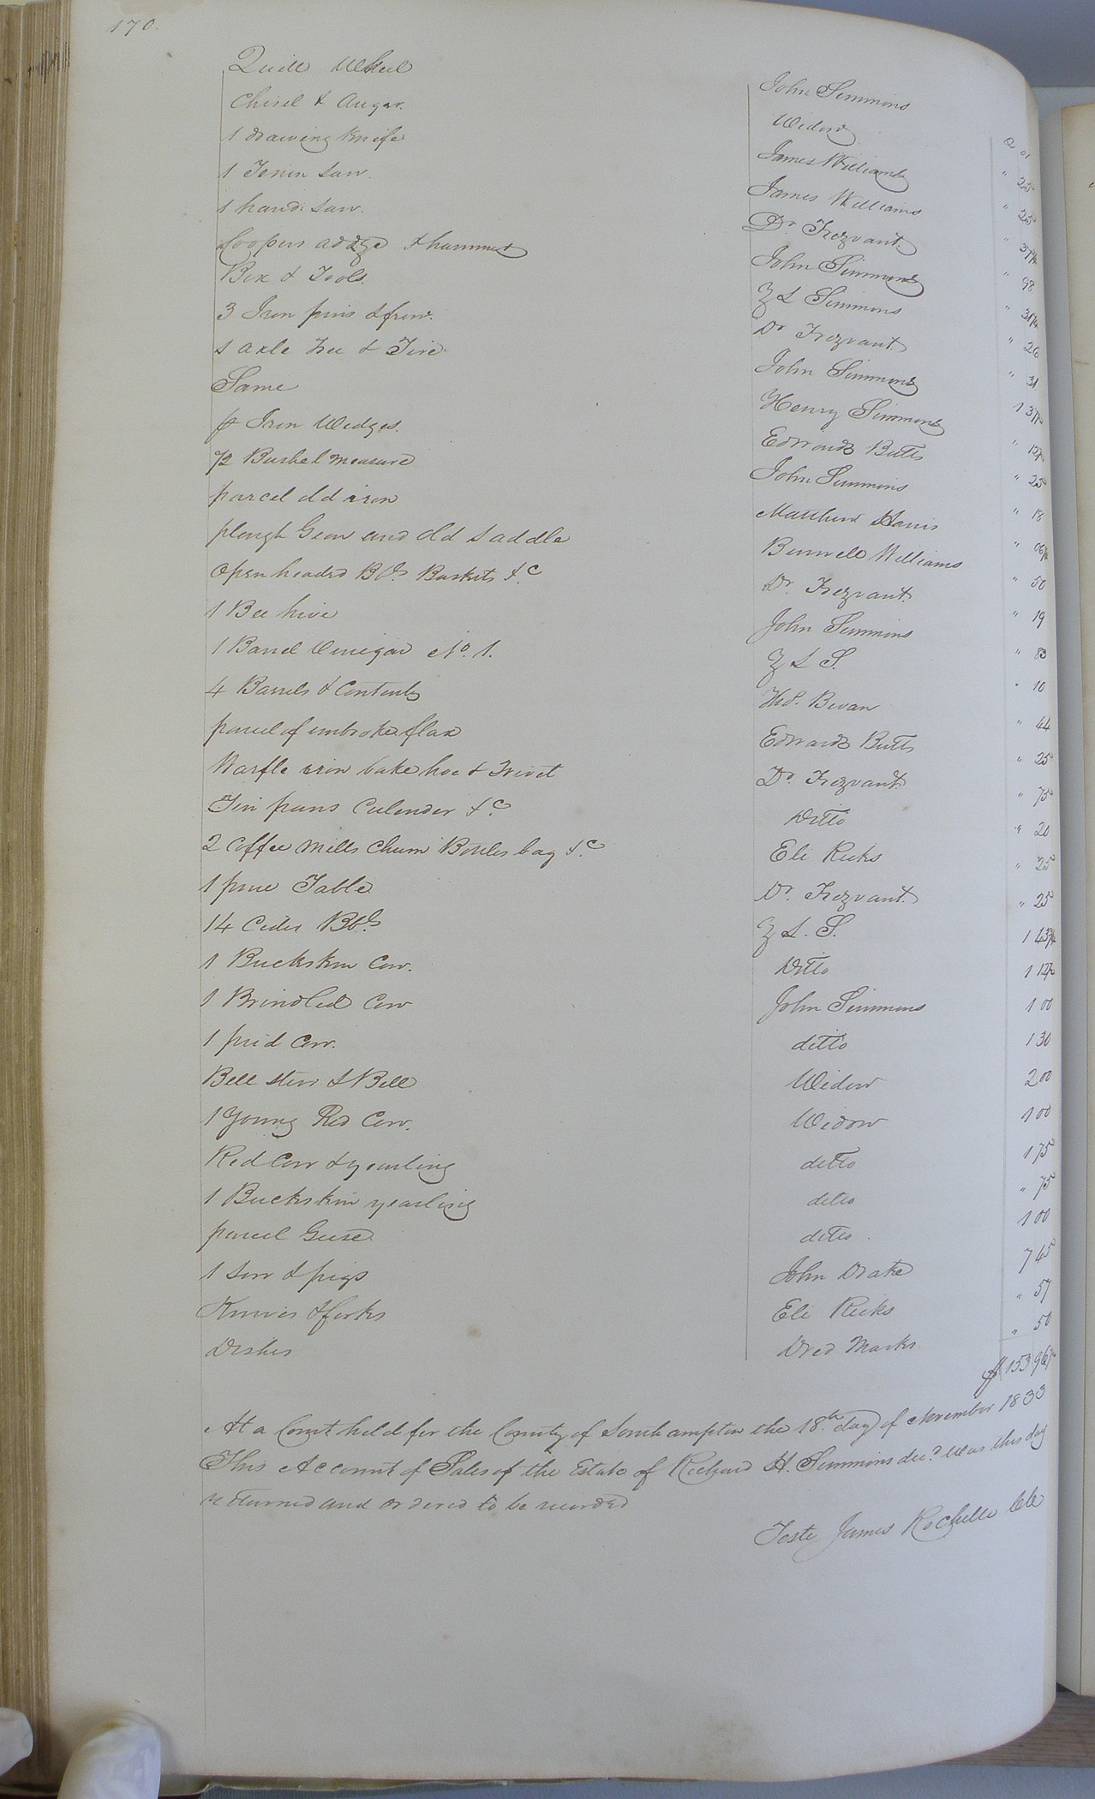 170.
Quill Wheel John Simmons 2 01
Chisel & Augar. Widow " 25
1 drawing Knife James Williams " 25
1 Tenin Saw. James Williams " 37½
1 hand Saw. Dr Trezvant " 98
Coopers addge & hammer John Simmons " 31¼
Box & Tools. Z L Simmons " 26
3 Iron pins & frow. Dr Trezvant " 31
1 axle Tree & Tire John Simmons 1 37½
Same Henry Simmons " 12½
pr Iron Wedges. Edwards Butts " 25
½ Bushel measure John Simmons " 18
parcel old iron Matthew Harris " 06¼
plough Gear and old Saddle Burwell Williams " 50
Open headed Bbls Baskets &c Dr. Trezvant. " 19
1 Bee hive John Simmons " 80
1 Barrel Vinigar No. 1. Z L S. " 10
4 Barrels & Contents Thos. Bevan " 44
parcel of unbroke flax Edwards Butts " 25
Warfle iron bake hoe & Trivet Dr. Trezvant " 75
Tin pans Culender &c Ditto " 20
2 Coffee Mills Churn Bottles bag &c Eli Ricks " 25
1 pine Table Dr. Trezvant. " 25
14 Cider Bbls Z L. S. 1 43¾
1 Buckskin Cow. Ditto 1 12½
1 Brindled Cow John Simmons 1 00
1 pied Cow. ditto 1 30
Bell Steer & Bell Widow 2 00
1 Young Red Cow. Widow 1 00
Red Cow & yearling ditto 1 75
1 Buckskin yearling ditto " 75
parcel Geese ditto 1 00
1 Sow & pigs John Drake 7 45
Knives & forks Eli Ricks " 57
Dishes Dred Marks " 50
$ 153 96½
At a Court held for the County of Southampton the 18th day of November 1833
This Account of Sales of the Estate of Richard H. Simmons decd. was this day
returned and ordered to be recorded
Teste James Rochelle Clk